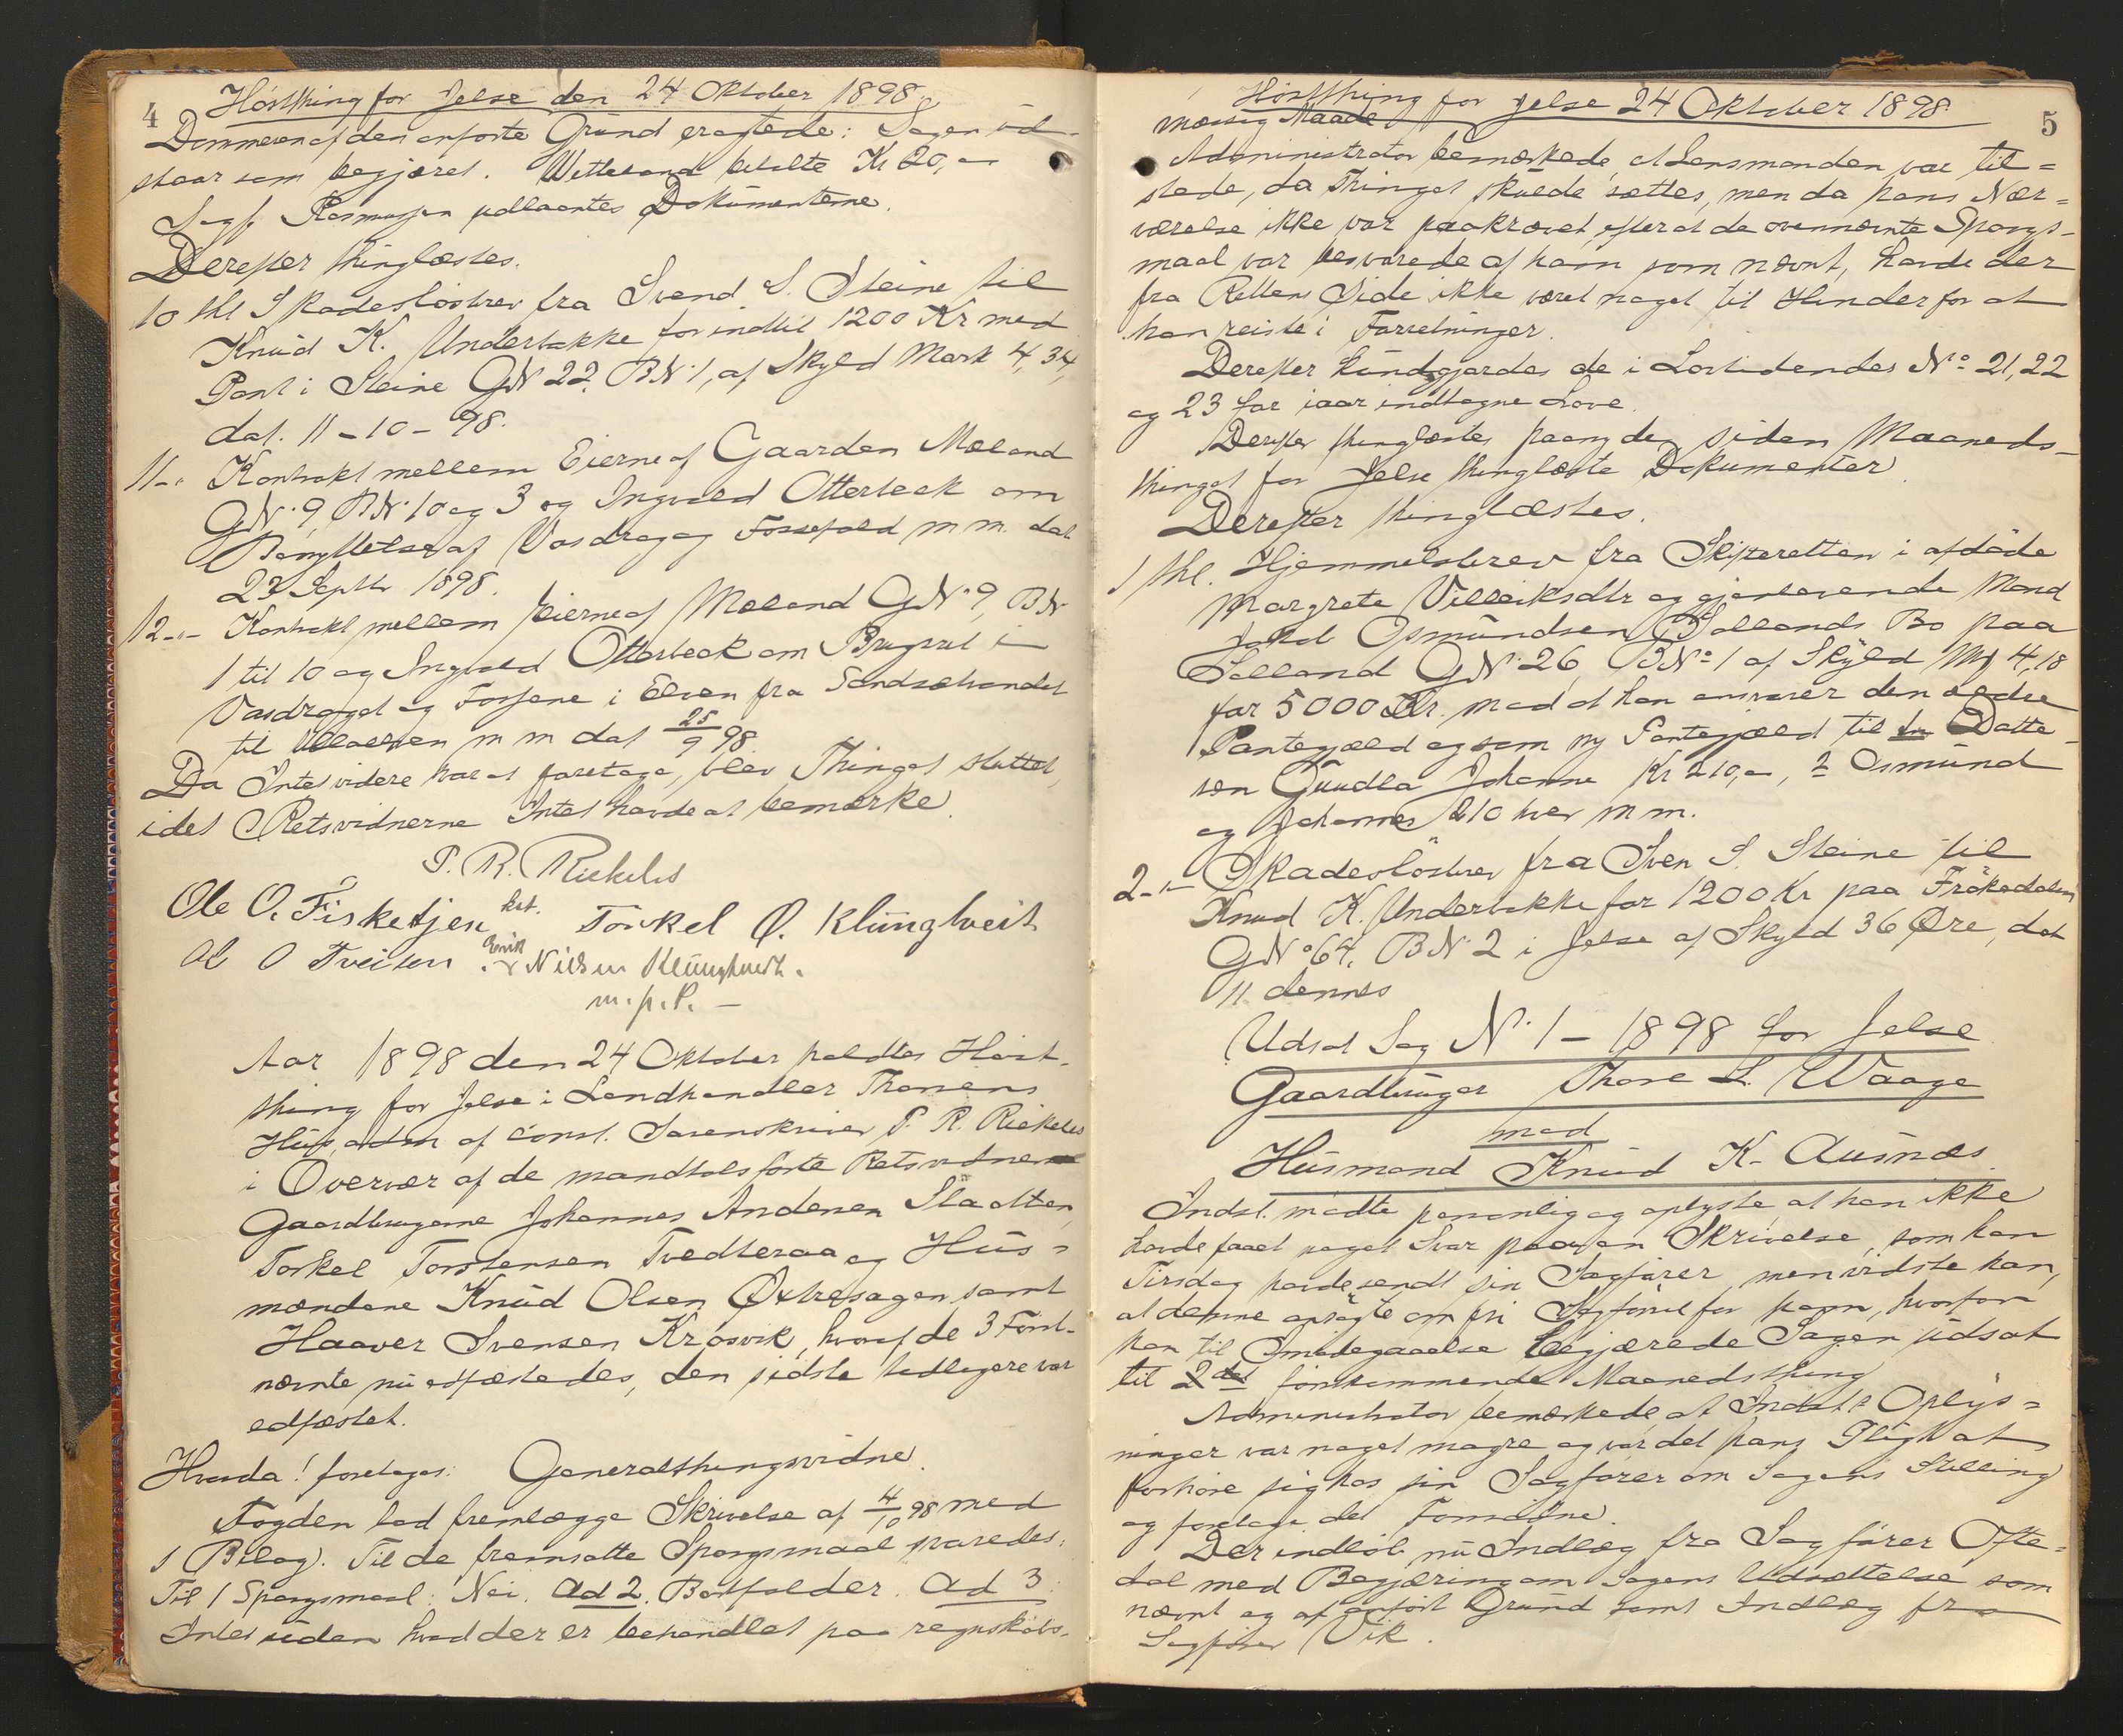 4 Høstthing for Jelse den 24 Oktober 1898
Dommeren af den anførte Grund eragtede: Sagen ud-
staar som begjæret. Wetteland betalte Kr 20,00
Sagf. Rasmussen udlaantes Dokumenterne.
Derefter thinglæstes.
10 thl Skadesløsbrev fra Svend S. Steine til
Knud K. Underbakke for indtil 1200 Kr med
Pant i Steine GN 22, BN 1, af Skyld Mark 4,34,
dat. 11-10-98.
11-"- Kontrakt mellem Eierne af Gaarden Mæland
GN. 9, BN. 10 og 3 og Ingvald Otterbeck om
Benyttelse af Vasdrag og Fossefald m m. dat
23 Septbr 1898.
12-"- Kontrakt mellem Eierne af Mæland GN. 9, BN
1 til 10 og Ingvald Otterbeck om Brugsret i
Vasdraget og Fossene i Elven fra Sandsævandet
til m m dat 25/9 98.
Da Intet videre var at foretage, blev Thinget sluttet,
idet Retsvidnerne Intet havde at bemærke.
P. R. Riekeles
Ole O. Fisketjen kst. Torkel O. Klungtveit
Ol O Tveiten Eirik Nilsen Klungtveit.
m. p. P. -
Aar 1898 den 24 Oktober holdtes Høst-
thing for Jelse i Landhandler Thomsens
Hus, adm af const. Sorenskriver P. R. Riekeles
i Overvær af de mandtalsførte Retsvidner
Gaardbrugerne Johannes Andersen
Torkel Torstensen Tvedteraa og Hus-
mændene Knud Olsen samt
Haaver Svensen Krosvik, hvoraf de 3 Først-
nævnte nu edfæstedes, den sidste tidligere var
edfæstet.
Hvorda! foretoges: Generalthingsvidne.
Fogden lod fremlægge Skrivelse af 4/10 98 med
1 Bilag. Til de fremsatte Spørgsmaal svaredes:
Til 1 Spørgsmaal: Nei. Ad 2. Bortfalder. Ad 3:
Intet uden hvad der er behandlet paa regnskabs-
Høstthing for Jelse 24 Oktober 1898. 5
mæssig Maade
Administrator bemærkede, at Lensmanden var til=
stede, da Thinget skulde sættes, men da hans Nær=
værelse ikke var paakrævet, efterat de ovennævnte Spørgs-
maal var besvarede af ham som nævnt, havde der
fra Rettens Side ikke været noget til Hinder for at
han reiste i Forretninger.
Derefter kundgjordes de i Lovtidendes No 21, 22
og 23 for iaar indtagne Love.
Derefter thinglæstes paany de siden Maaneds-
thinget for Jelse thinglæste Dokumenter.
Derefter thinglæstes.
1 thl. Hjemmelsbrev fra Skifteretten i afdøde
Margrete Villeiksdtr og gjenlevende Mand
Osmundsen Sollands Bo paa
Solland GN. 26, BNo 1 af Skyld M 4,18
for 5000 Kr. mod at han ansvarer den ældre
Pantegjæld og som ny Pantegjæld til Datte-
ren Gundla Johanne Kr 210,00, 2 Osmund
og Johannes 210 hver m m.
2-"- Skadesløsbrev fra Sven S. Steine til
Knud K. Underbakke for 1200 Kr paa Frøkedalen
GNo 64, BN 2 i Jelse af Skyld 36 Øre, dat
11 dennes
Udsat Sag N. 1 - 1898 for Jelse
Gaardbruger Thore L. Waage
mod
Husmand Knud K. Ausnæs.
Indst. mødte personlig og oplyste at han ikke
havde faaet noget Svar paa en Skrivelse, som han
Tirsdag havde sendt sin Sagfører, men vidste han,
at denne ansøgte om fri Sagførsel for ham, hvorfor
han til Imødegaaelse begjærede Sagen udsat
til 2det førstkommende Maanedsthing
Administrator bemærkede at Indst's Oplys=
ninger var noget magre og var det hans Pligt at
forhøre sig hos sin Sagfører om Sagens Stilling
og foretage det Fornødne.
Der indløb nu Indlæg fra Sagfører Ofte=
dal med Begjæring om Sagens Udsættelse som
nævnt og af anført Grund samt Indlæg fra
Sagfører Vik.